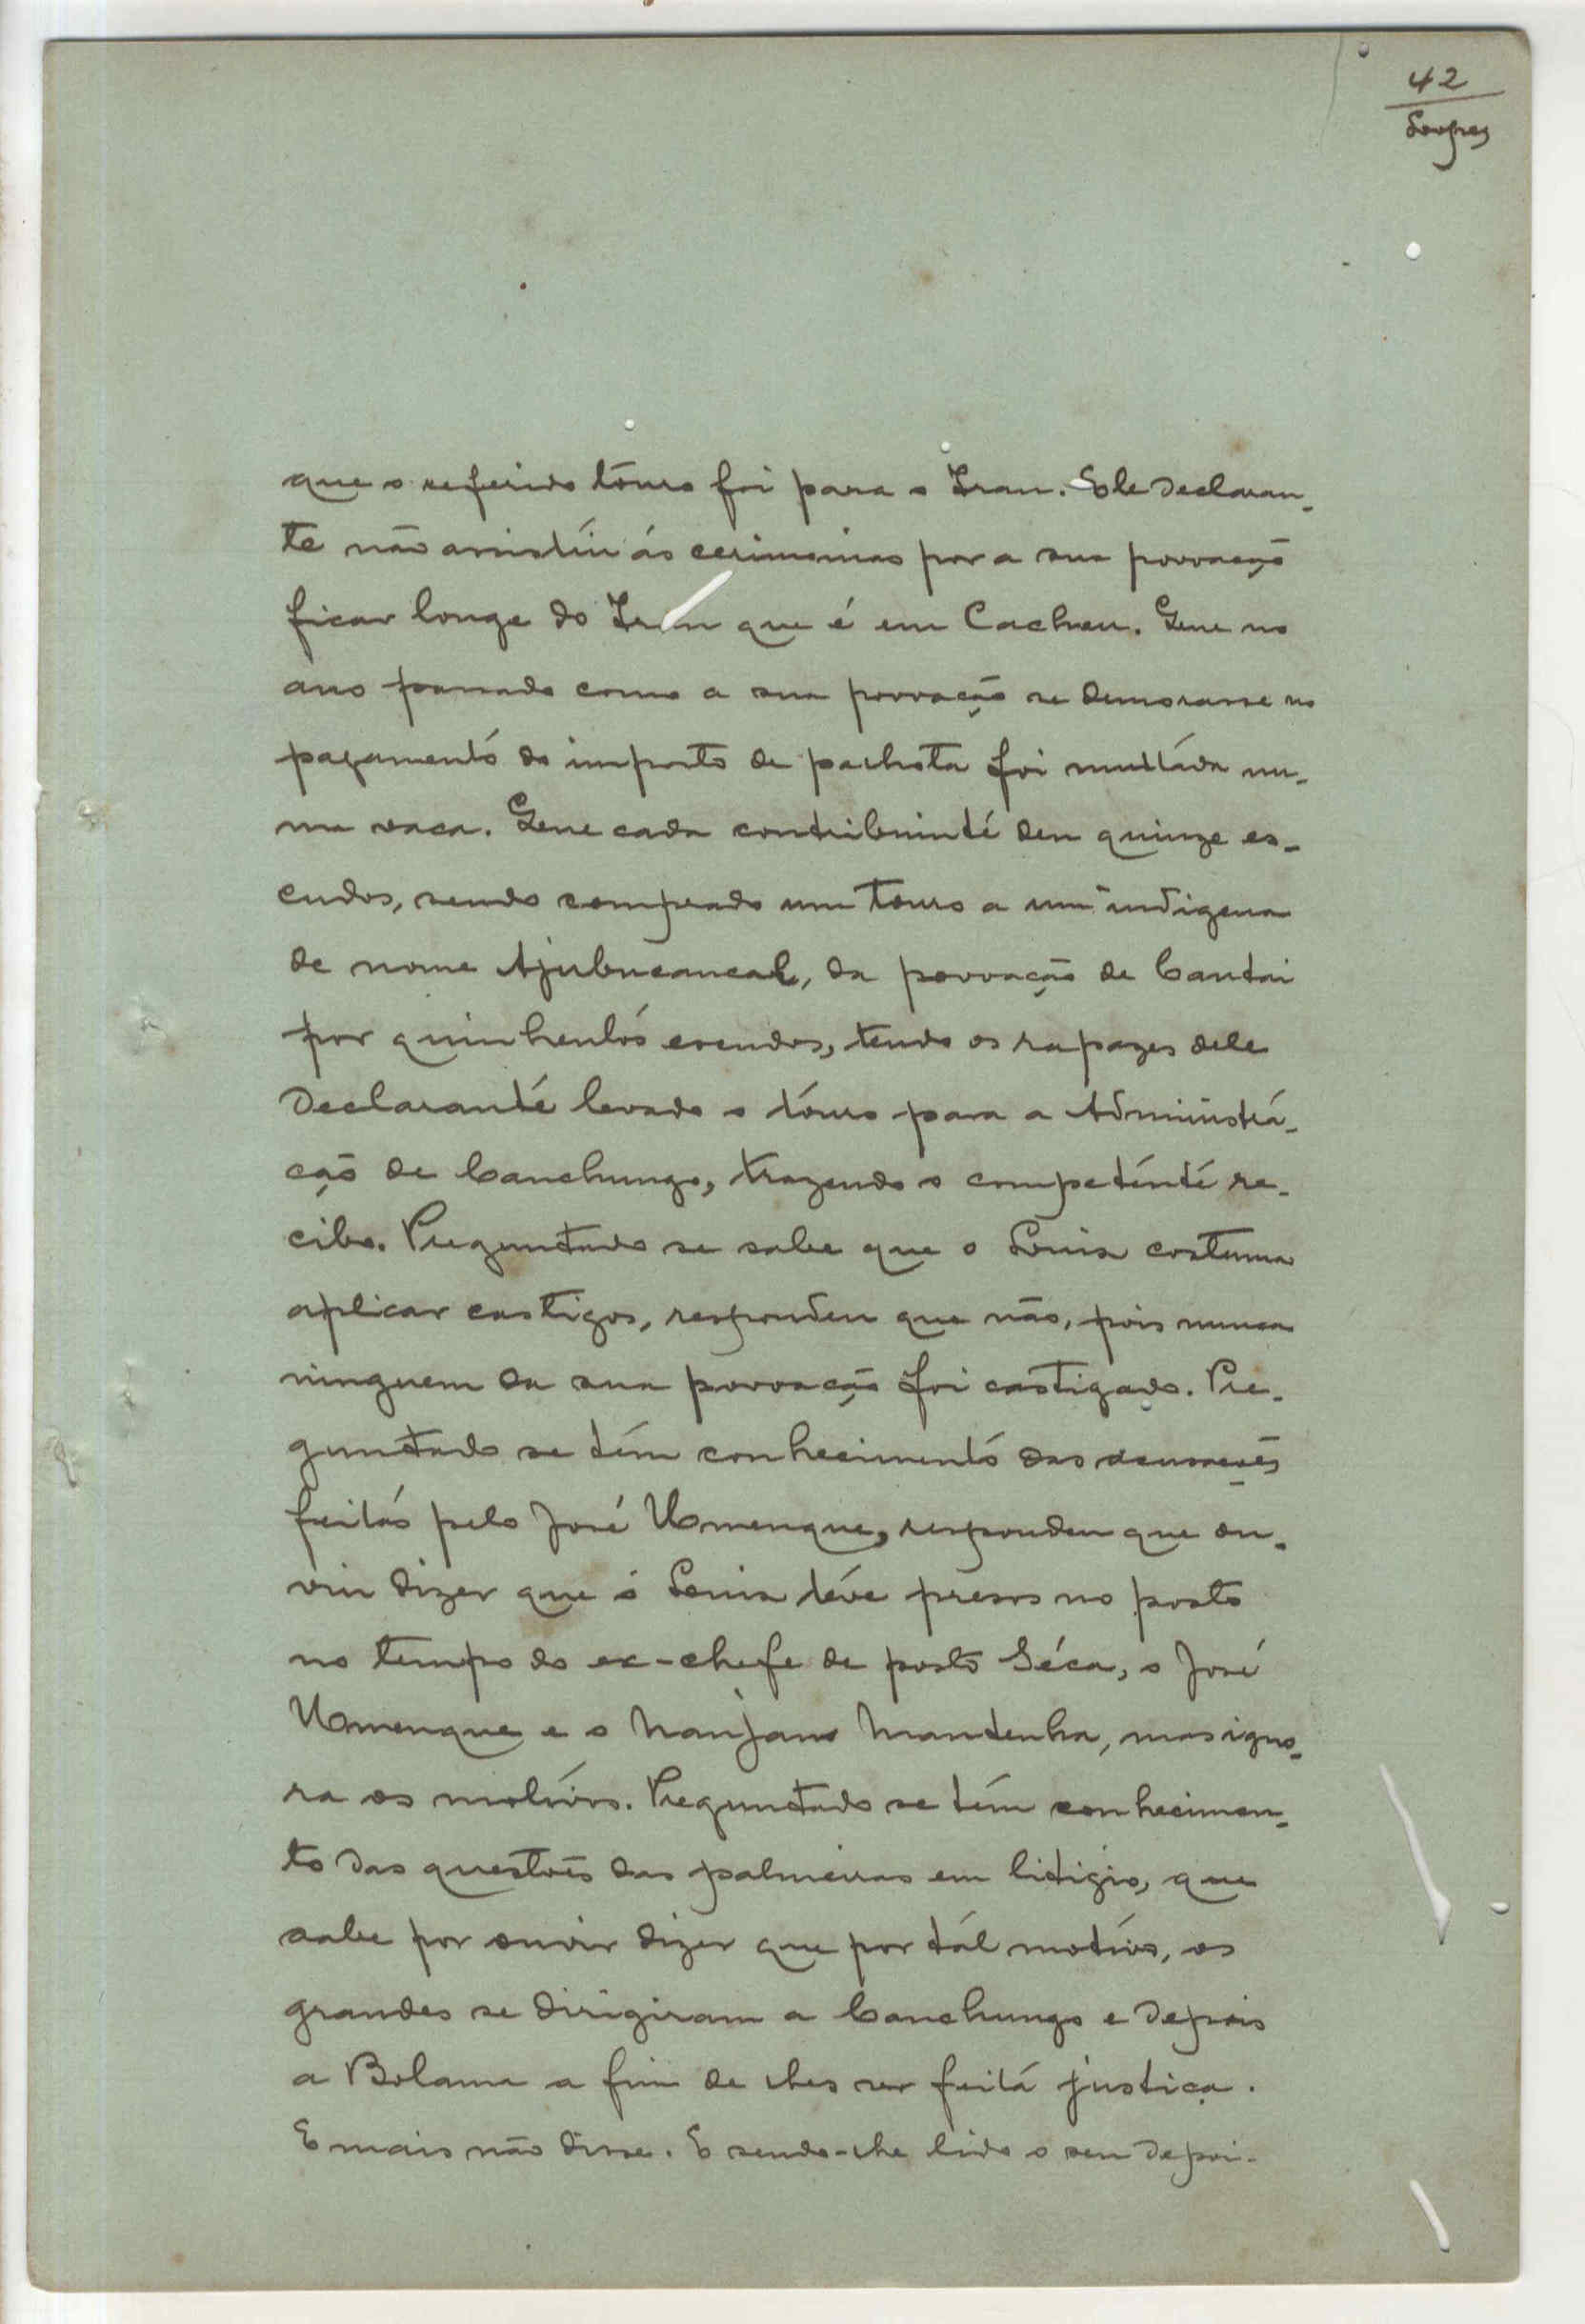 42
que o referido touro foi para o Iran. Ele declaran-
te não assistiu ás cerimonias por a sua povoação
ficar longe do Iran que é em Cacheu. Que no
ano passado como a sua povoação se demorasse no
pagamento do imposto de palhota foi multada nu-
ma vaca. Que cada contribuinte deu quinze es-
cudos, sendo comprado um touro a um indigena
de nome Ajubucancal, da povoação de Cantai
por quinhentos escudos, tendo os rapazes dele
declarante levado o touro para a Administra-
ção de Canchungo, trazendo o competente re-
cibo. Preguntado se sabe que o Luis costuma
aplicar castigos, respondeu que não, pois nunca
ninguem da sua povoação foi castigado. Pre-
guntado se tem conhecimento das acusações
feitas pelo José Umenque, respondeu que ou-
viu dizer que o Luis teve presos no posto
no tempo do ex-chefe de posto Séca, o José
Umenque e o Nanjano Mantenha, mas igno-
ra os motivos. Preguntado se tem conhecimen-
to das questões das palmeiras em litigio, que
sabe por ouvir dizer que por tál motivo, os
grandes se dirigiram a Canchungo e depois
a Bolama a fim de lhes ser feita justiça.
E mais não disse. E sendo-lhe lido o seu depoi-